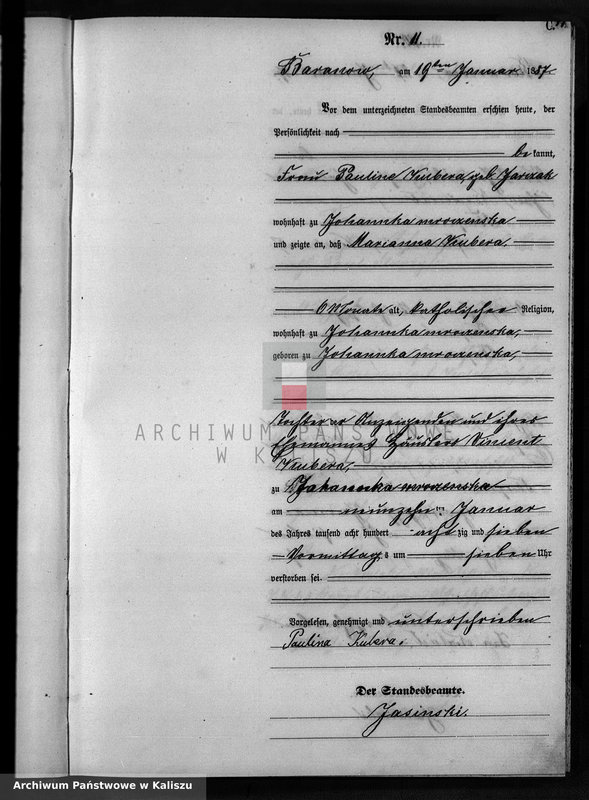 C.
Nr. 11.
Baranow, am 19ten Januar 1887
Vor dem unterzeichneten Standesbeamten erschien heute, der
Persönlichkeit nach
be kannt,
Frau Pauline Kubera, geb. Jarczak
wohnhaft zu Johannka mroczenska
und zeigte an, daß Marianna Kubera.
6 Monate alt, katholischer Religion,
wohnhaft zu Johannka mroczenska,
geboren zu Johannka mroczenska,
Tochter der Anzeigenden und ihres
Ehemannes Häuslers Vincent
Kubera,
zu Johannka mroczenska
am neunzehn ten Januar
des Jahres tausend acht hundert acht zig und sieben
Vormittag s um sieben Uhr
verstorben sei.
Vorgelesen, genehmigt und unterschrieben
Paulina Kubera.
Der Standesbeamte.
Jasinski.
ARCHIWUM PAŃSTWOWE
W KALISZU
Archiwum Państwowe w Kaliszu